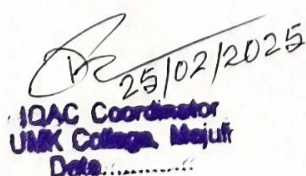 25/02/2025
IQAC Coordinator
UMK College, Mejuli
Date..............